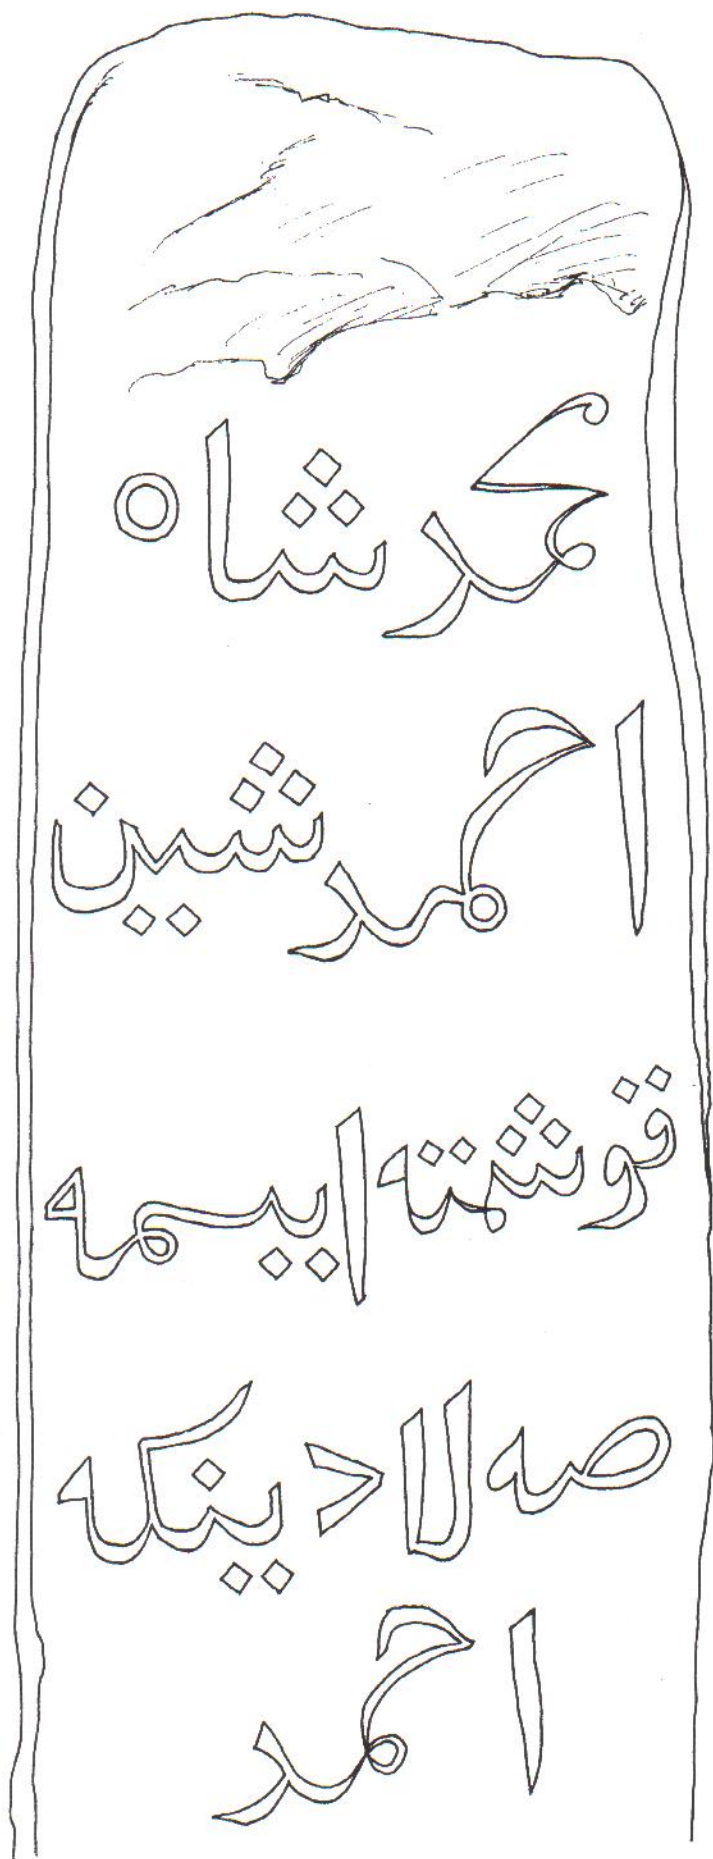 محمد شاه
احمد شين
قوشمته ابيمه
صه لادينكه
احمد